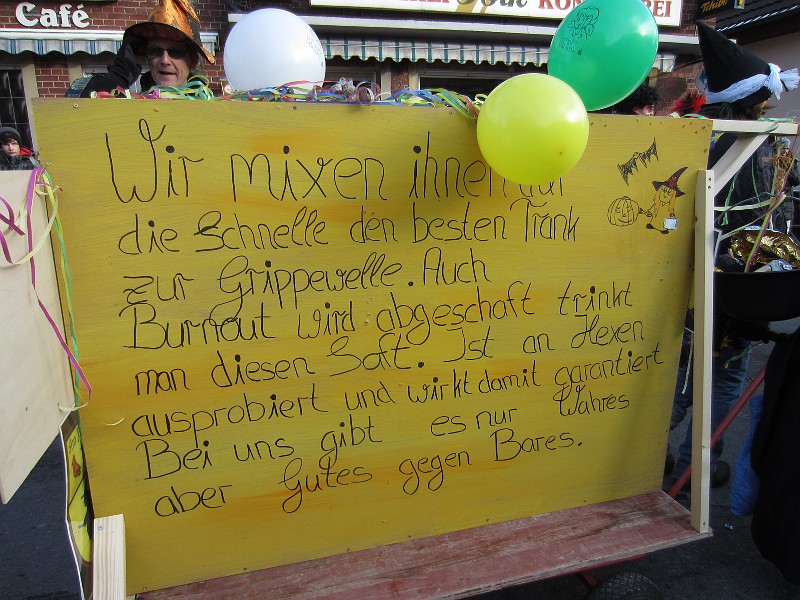 Café
Tchibo
Wir mixen ihnen auf
die Schnelle den besten Trank
zur Grippewelle. Auch
Burnout wird abgeschaft trinkt
man diesen Saft. Ist an Hexen
ausprobiert und wirkt damit garantiert
Bei uns gibt es nur Wahres
aber Gutes gegen Bares.